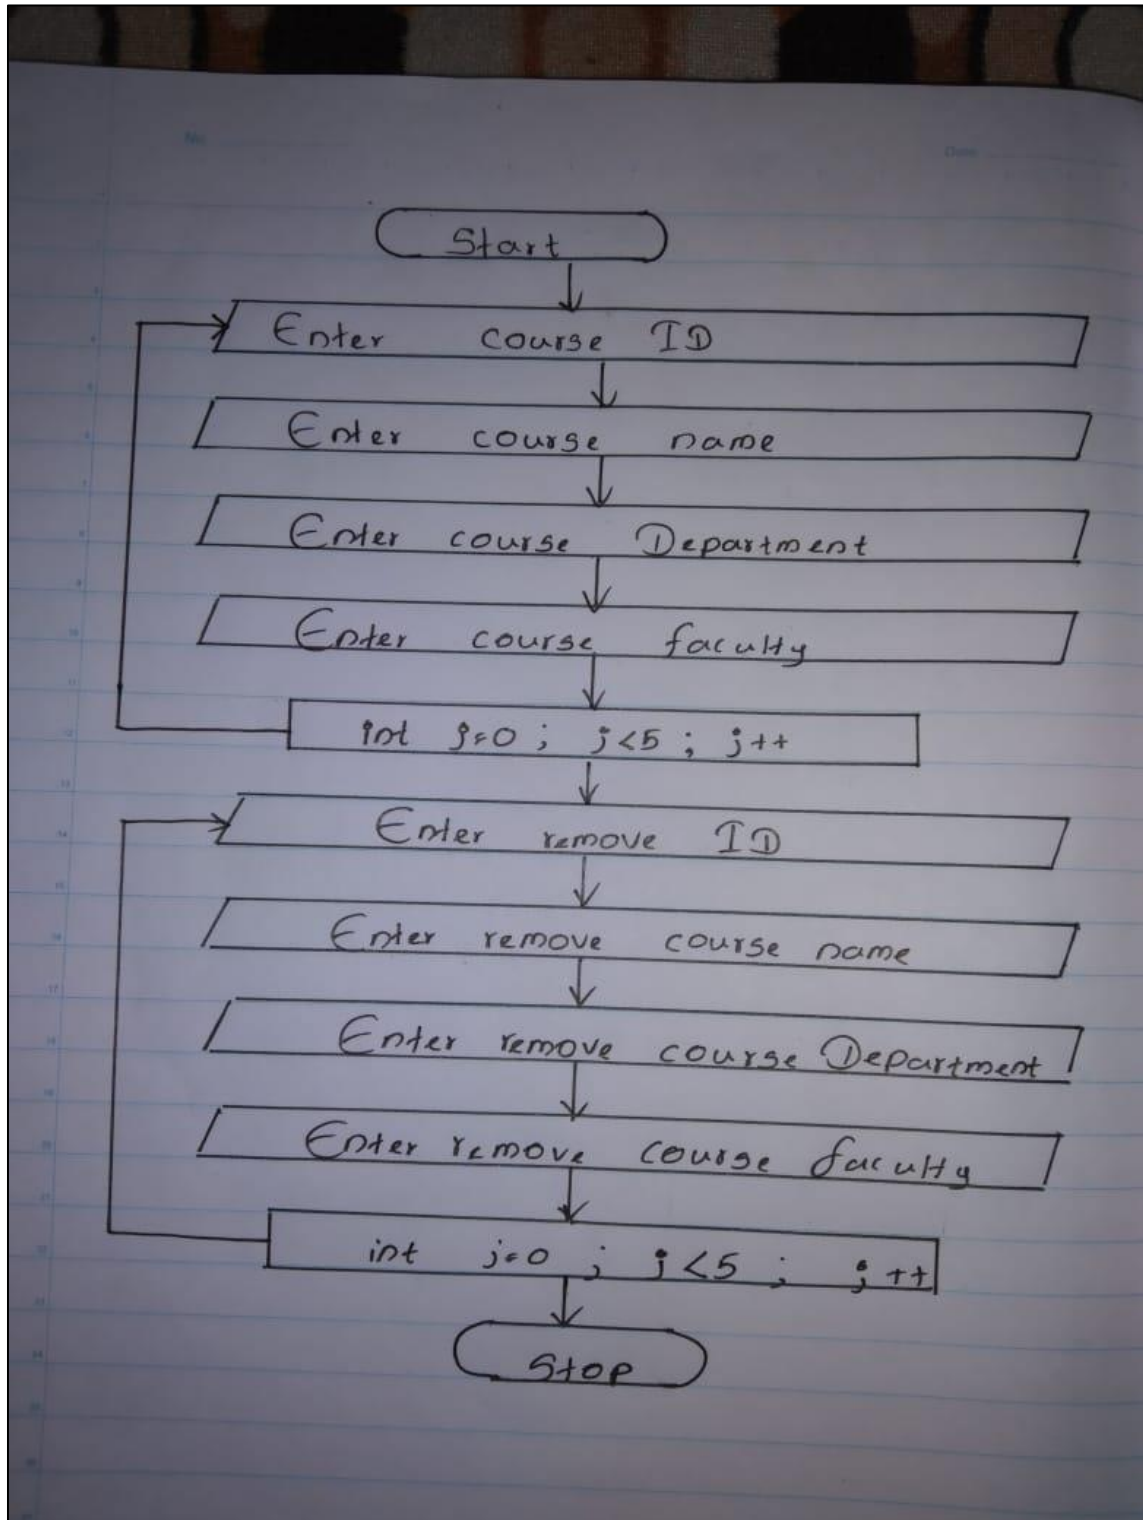 No.
Date
Start
Enter course ID
Enter course name
Enter course Department
Enter course faculty
int j=0 ; j<5 ; j++
Enter remove ID
Enter remove course name
Enter remove course Department
Enter remove course faculty
int j=0 ; j<5 ; j++
Stop